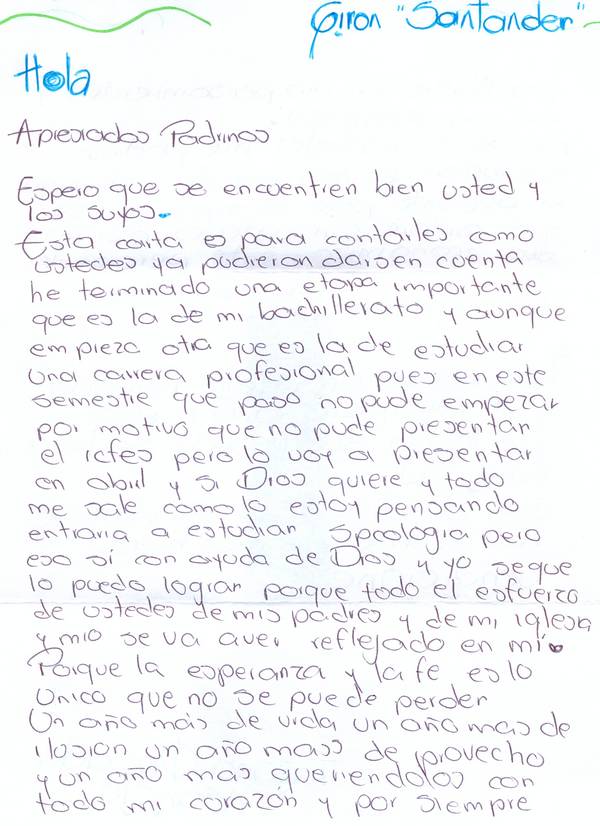 Giron "Santander"
Hola
Apresiados Padrinos
Espero que se encuentren bien usted y
los suyos.
Esta carta es para contarles como
ustedes ya pudieron darsen cuenta
he terminado una etapa importante
que es la de mi bachillerato y aunque
empieza otra que es la de estudiar
una carrera profesional pues en este
semestre que paso no pude empezar
por motivo que no pude presentar
el icfes pero lo voy a presentar
en abril y si Dios quiere y todo
me sale como lo estoy pensando
entraria a estudiar Spcologia pero
eso si con ayuda de Dios y yo se que
lo puedo lograr porque todo el esfuerzo
de ustedes de mis padres y de mi iglesia
y mio se va aver reflejado en mi.
Porque la esperanza y la fe es lo
unico que no se puede perder
Un año más de vida un año mas de
ilosion un año mass de provecho
y un año mas queriendolos con
todo mi corazón y por siempre